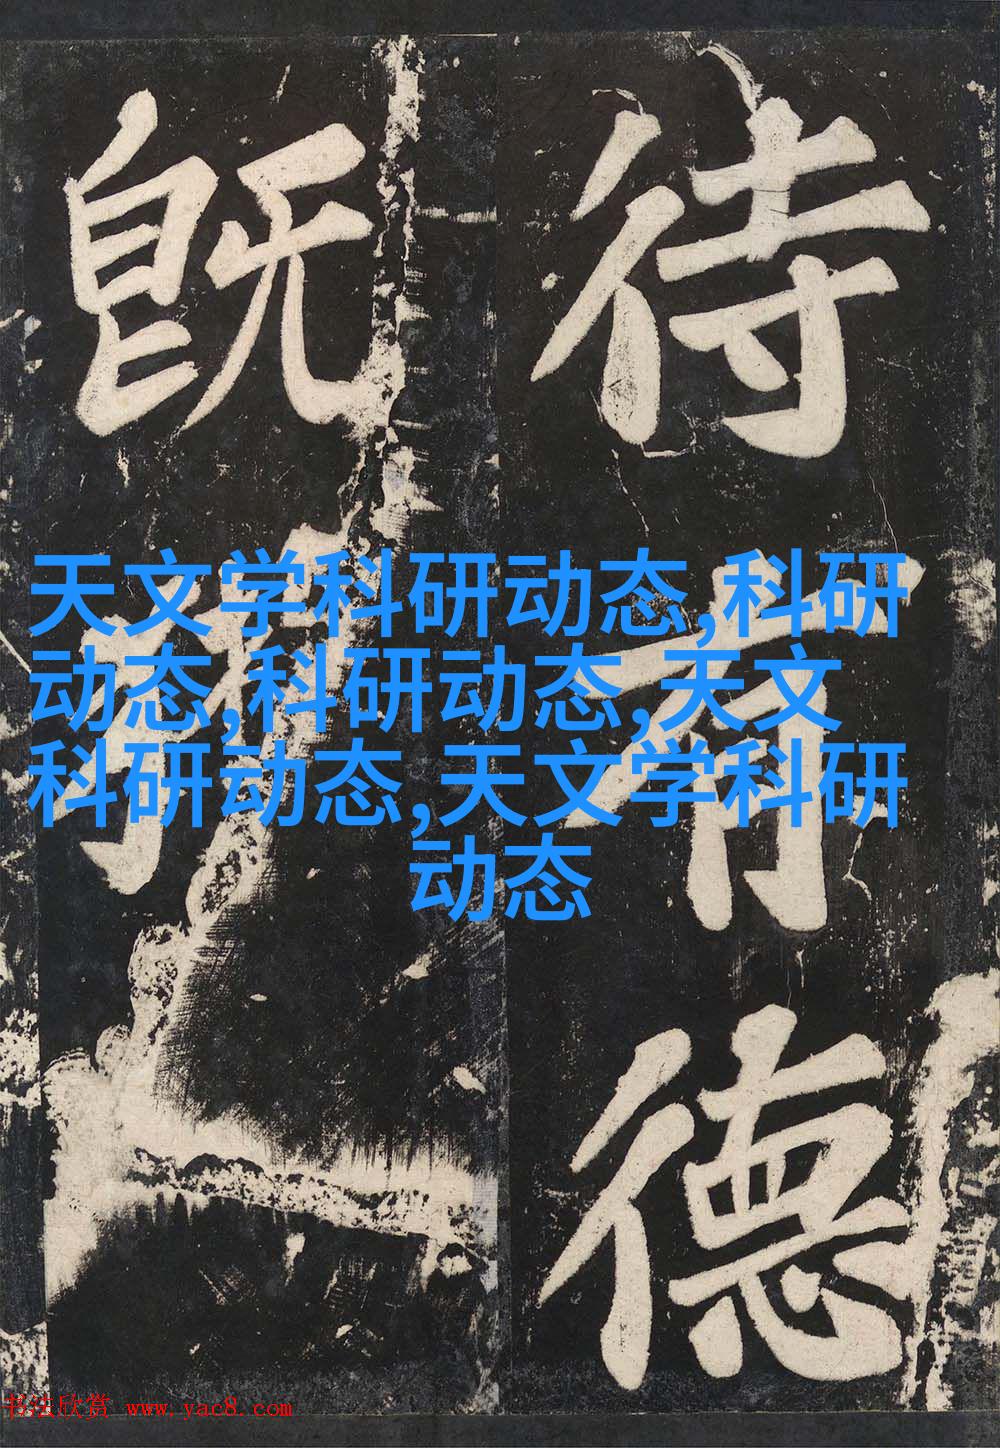 待有德
既
天文学科研动态,科研
动态,科研动态,天文
科研动态,天文学科研
动态
书法欣赏 www.yac8.com